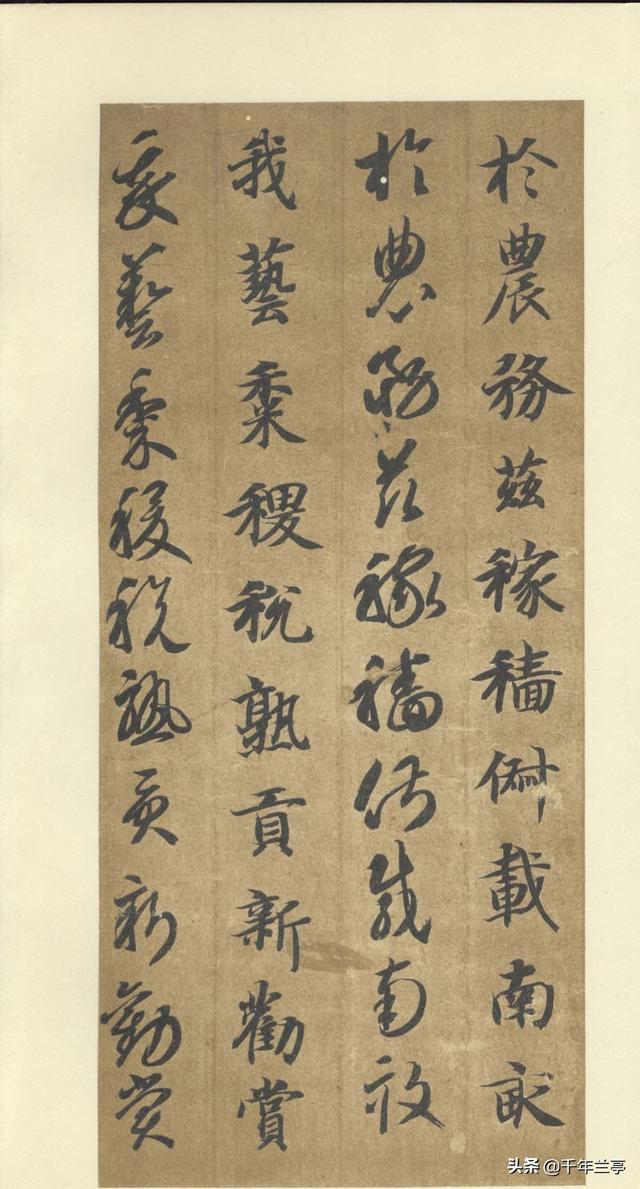 於農務茲稼穡俶載南畝
於農務茲稼穡俶載南畝
我藝黍稷稅熟貢新勸賞
我藝黍稷稅熟貢新勸賞
头条 @千年兰亭